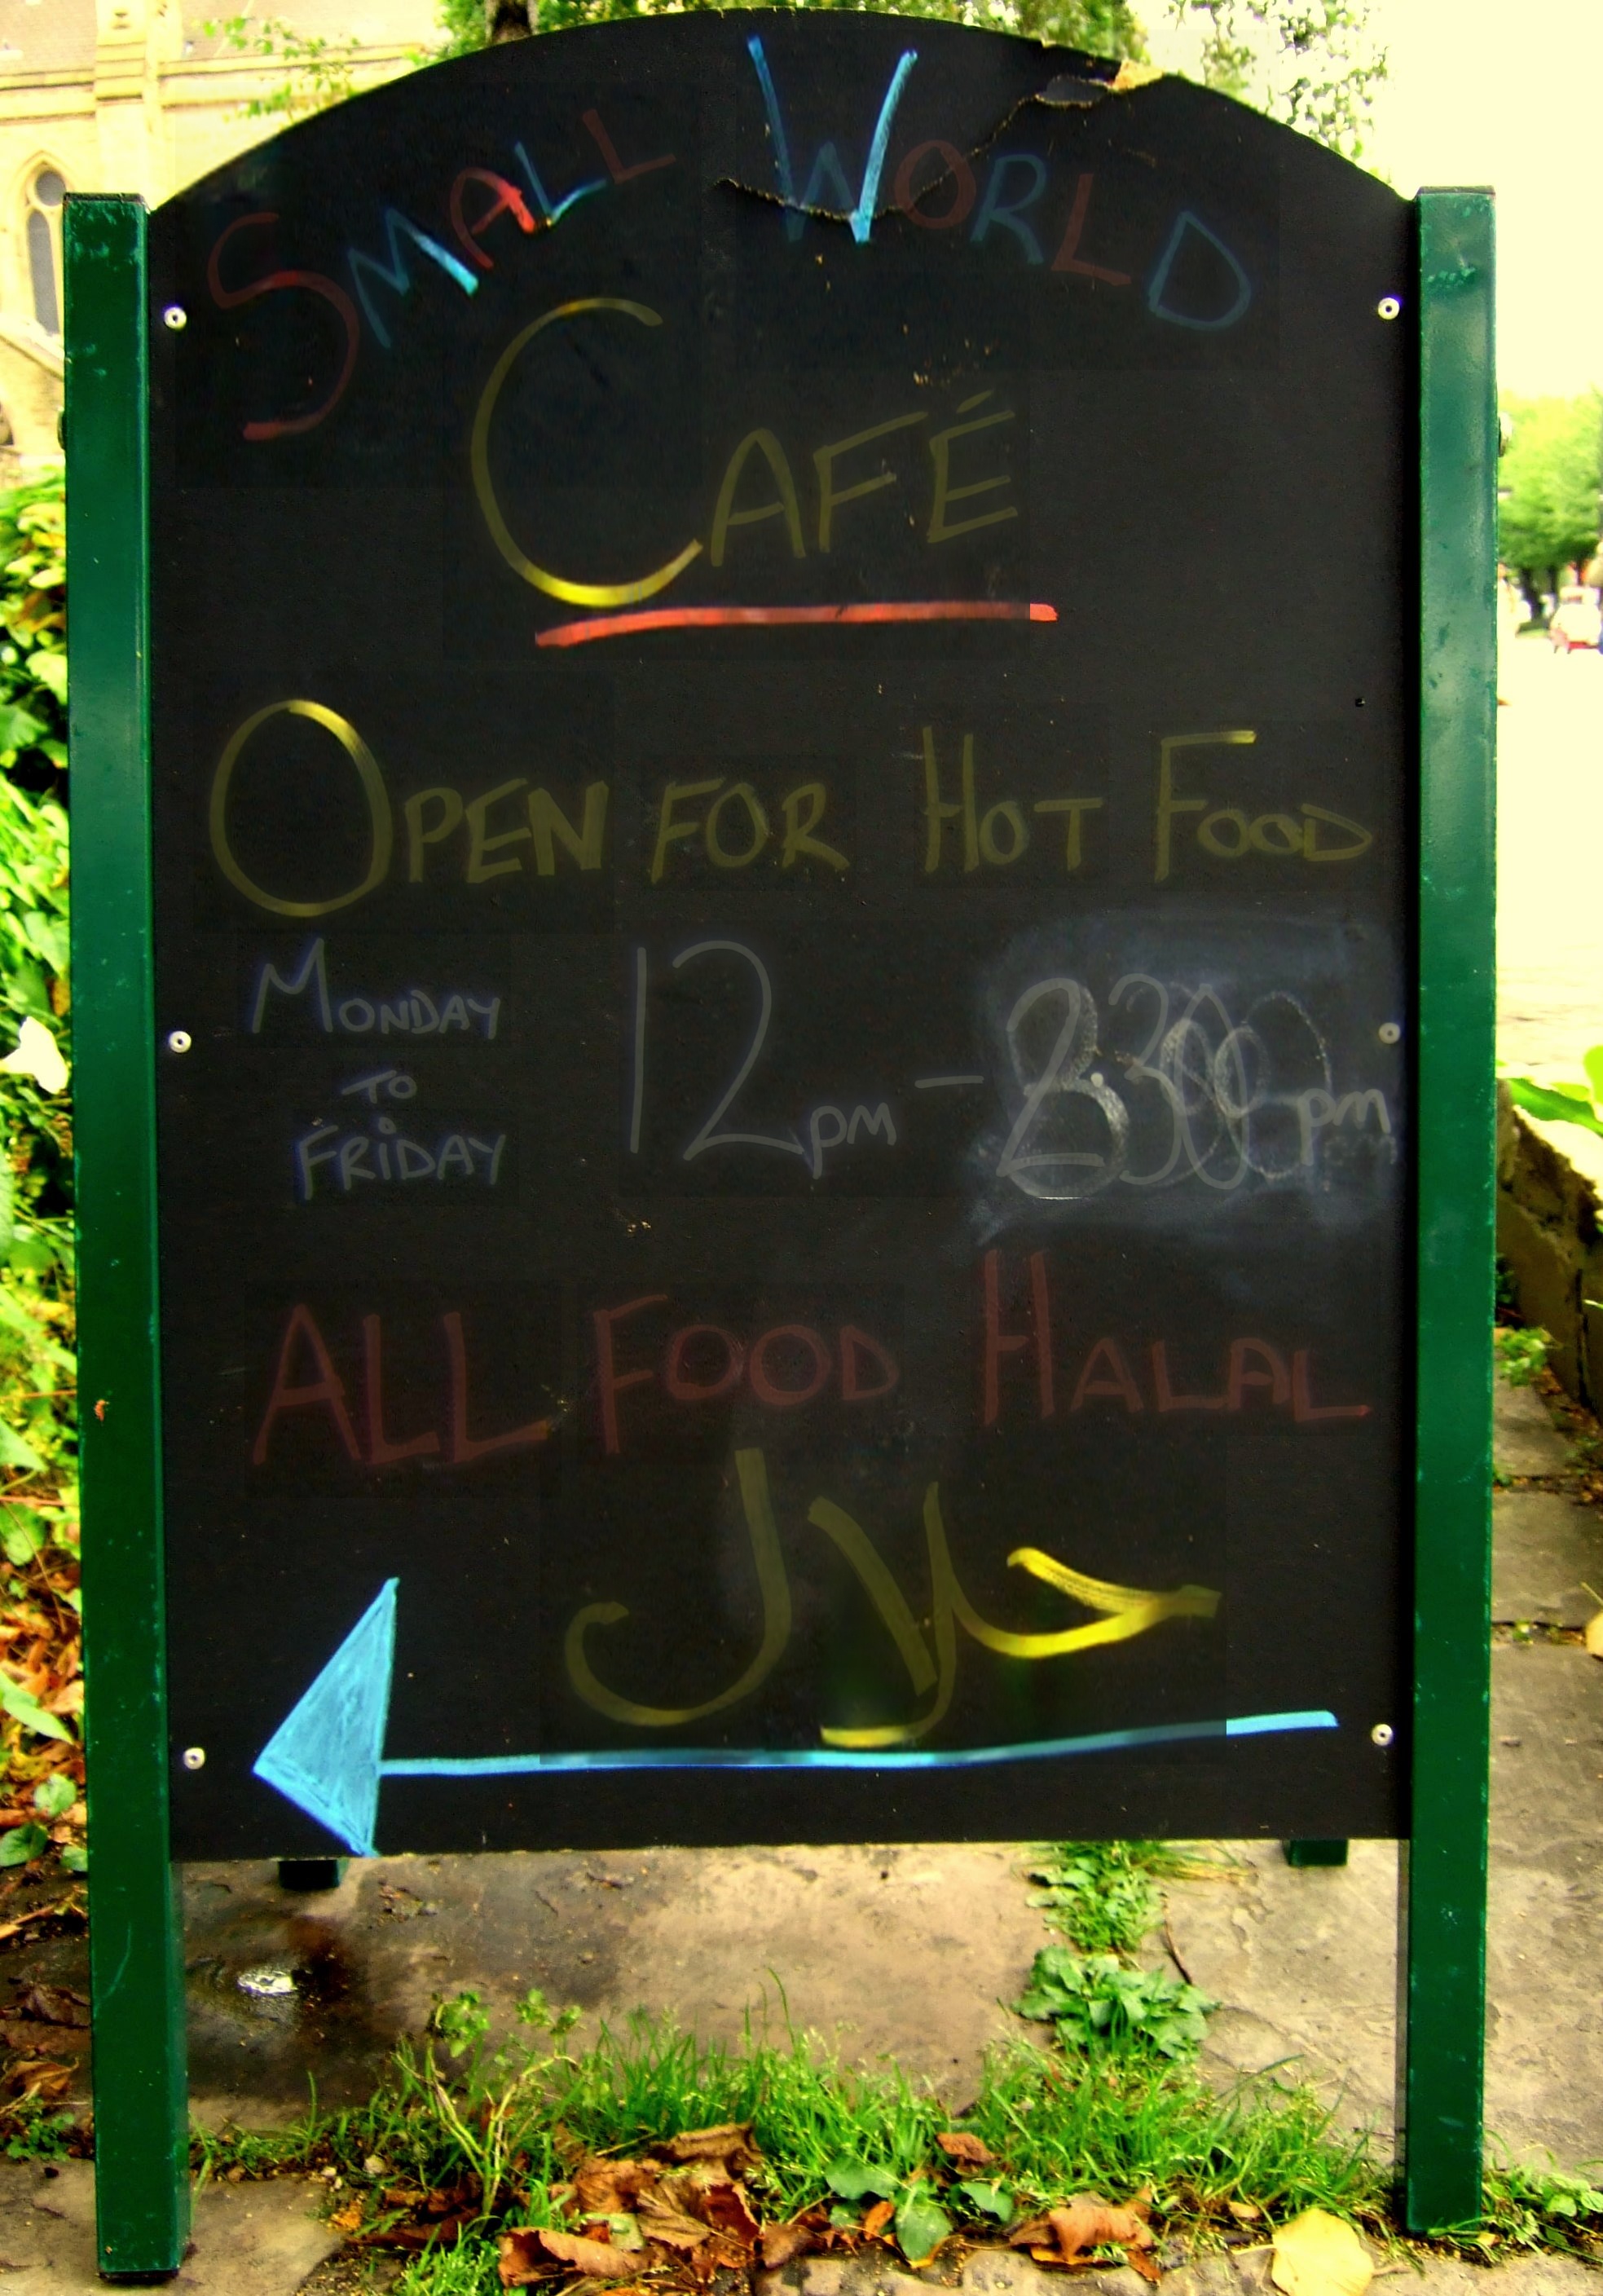 SMALL WORLD
CAFÉ
OPEN FOR HOT FOOD
MONDAY
TO
FRIDAY
12pm -
pm
ALL FOOD HALAL
حلال